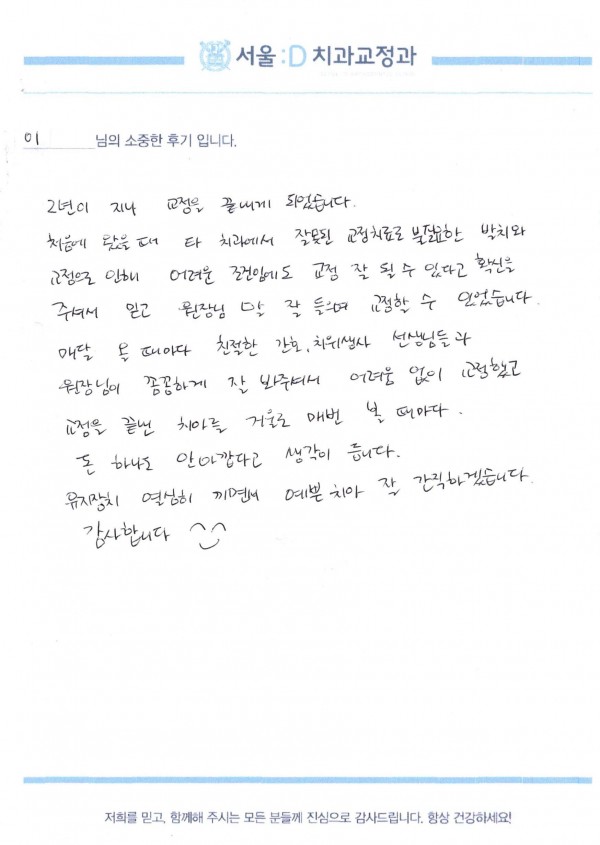 서울:D 치과교정과
이 님의 소중한 후기 입니다.
2년이 지나 교정을 끝내게 되었습니다.
처음에 왔을 때 타 치과에서 잘못된 교정치료로 불필요한 발치와
교정으로 인해 어려운 조건임에도 교정 잘 될 수 있다고 확신을
주셔서 믿고 원장님 말 잘 들으며 교정할 수 있었습니다.
매달 올 때마다 친절한 간호, 치위생사 선생님들과
원장님이 꼼꼼하게 잘 봐주셔서 어려움 없이 교정했고
교정을 끝낸 치아를 거울로 매번 볼 때마다.
돈 하나도 안아깝다고 생각이 듭니다.
유지장치 열심히 끼면서 예쁜 치아 잘 간직하겠습니다.
감사합니다
저희를 믿고, 함께해 주시는 모든 분들께 진심으로 감사드립니다. 항상 건강하세요!